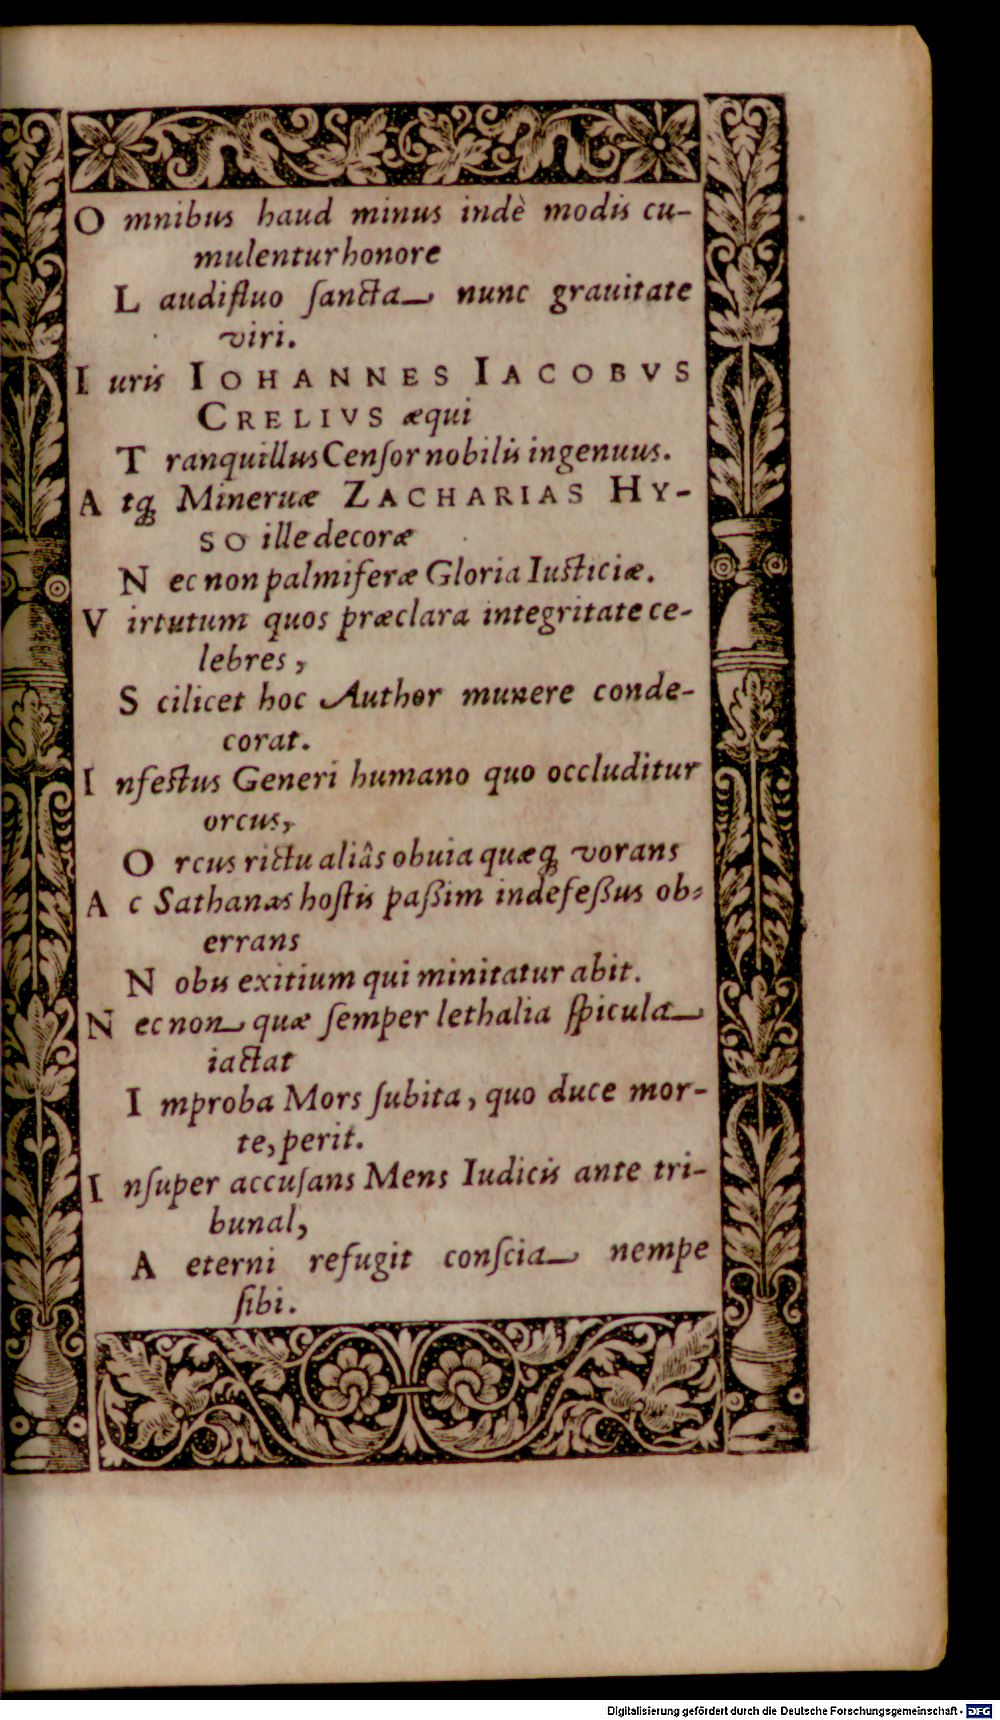 O mnibus haud minus indè modis cu-
mulentur honore
L audifluo ſancta nunc grauitate
viri.
I uris IOHANNES IACOBVS
CRELIVS æqui
T ranquillus Cenſor nobilis ingenuus.
A tq́; Mineruæ ZACHARIAS HY-
SO ille decoræ
N ec non palmiferæ Gloria Iusticiæ.
V irtutum quos præclara integritate ce-
lebres,
S cilicet hoc Author munere conde-
corat.
I nfestus Generi humano quo occluditur
orcus,
O rcus rictu aliâs obuia quæq́; vorans
A c Sathanas hoſtis paßim indefeßus ob-
errans
N obis exitium qui minitatur abit.
N ec non quæ ſemper lethalia ſpicula
iactat
I mproba Mors ſubita, quo duce mor-
te, perit.
I nſuper accuſans Mens Iudicis ante tri-
bunal,
A eterni refugit conſcia nempe
ſibi.
Digitalisierung gefördert durch die Deutsche Forschungsgemeinschaft - DFG